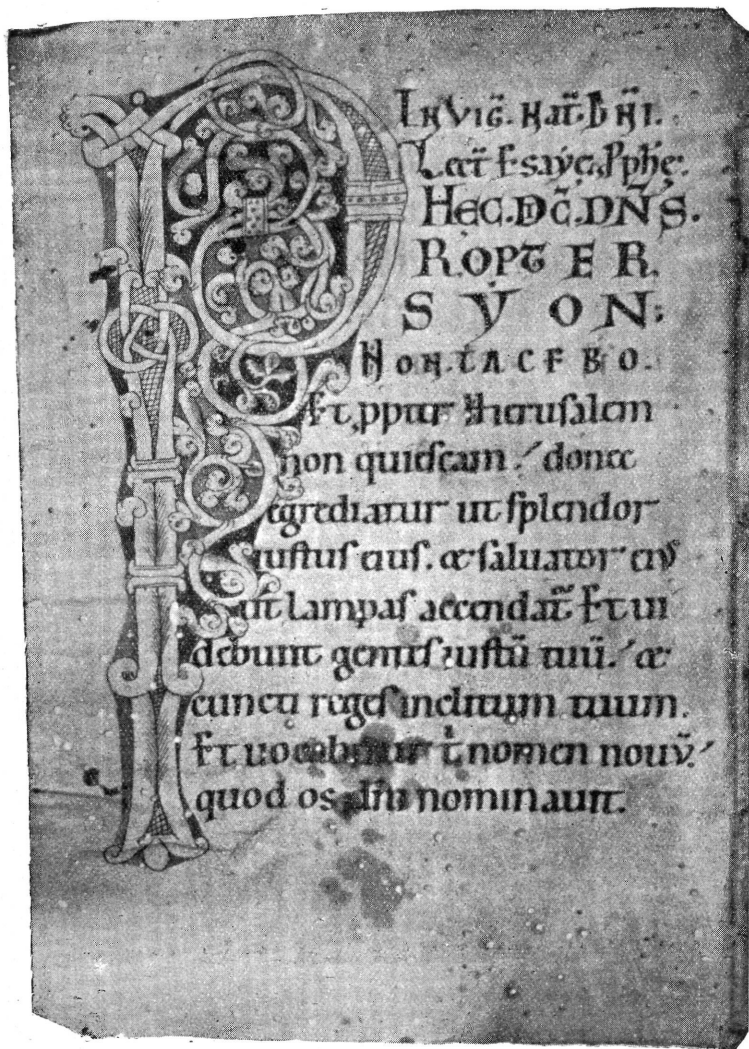 IN VIG̃. NAT̃. DÑI.
Lect̃ Esaẏę Pphę:
HEC. DC̃. DÑS.
PROPTER
SYON:
NON TACEBO.
Et ꝓpter Hierusalem
non quiescam ⸵ donec
egrediatur ut splendor
iustus eius. et saluator eiꝰ
ut lampas accendat̃. Et ui
debunt gentes iustũ tuũ ⸵ et
cuncti reges inclitum tuum.
Et uocabitur t̃ nomen nouũ ⸵
quod os dñi nominauit.